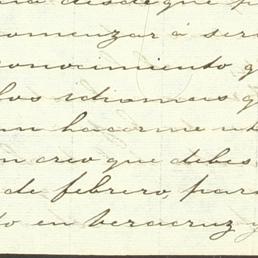 desde que p
comenzar á ser
conocimiento q
los idiomas q
hacerme u
creo que debes
de febrero, para
to en Veracruz y